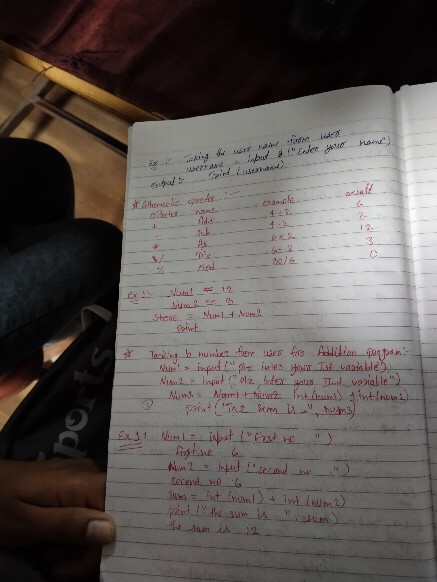 Ex :- Taking the user name from user
username = input ("Enter your name")
output :- Print (username)
* Athematic opreter :-
opreter name example result
+ Add 4+2 6
- Sub 4-2 2
* 6×2 12
/ Div 6÷2 3
% Mod 30/6 0
Ex 1:- Num1 = 12
Num2 =
Store = Num1 + Num2
Print
* Tacking to number from user for Addition program:-
Num1 = input ("plz inter your Ist variable")
Num2 = input ("plz Enter your IInd variable")
Num3 = Num1 + Num2 Int(num1) + int(num2)
print ("The sum is =", Num3)
Ex 1 Num1 = input ("first no ")
first no 6
Num2 = input ("second no ")
second no 6
sum = int (num1) + int (num2)
print ("the sum is ", sum)
the sum is 12
ports